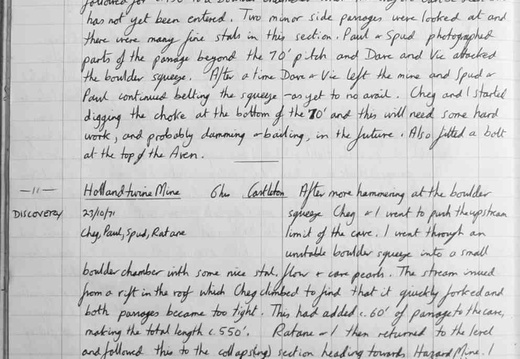 has not yet been entered. Two minor side passages were looked at and
there were many fine stals in this section. Paul & Spud photographed
parts of the passage beyond the 70' pitch and Dave and Vic attacked
the boulder squeeze. After a time Dave & Vic left the mine and Spud &
Paul continued belting the squeeze - as yet to no avail. Cheg and I started
digging the choke at the bottom of the 70' and this will need some hard
work, and probably damming & bailing, in the future. Also fitted a bolt
at the top of the Aven.
—11— Hollandtwine Mine 6hrs Castleton After more hammering at the boulder
DISCOVERY 23/10/71 squeeze Cheg & I went to push the upstream
Cheg, Paul, Spud, Ratane limit of the cave. I went through an
unstable boulder squeeze into a small
boulder chamber with some nice stal. flow & cave pearls. The stream issued
from a rift in the roof which Cheg climbed to find that it quickly forked and
both passages became too tight. This had added c.60' of passage to the cave,
making the total length c.550'. Ratane & I then returned to the level
and followed this to the collapse(s) section heading towards Hazard Mine. I